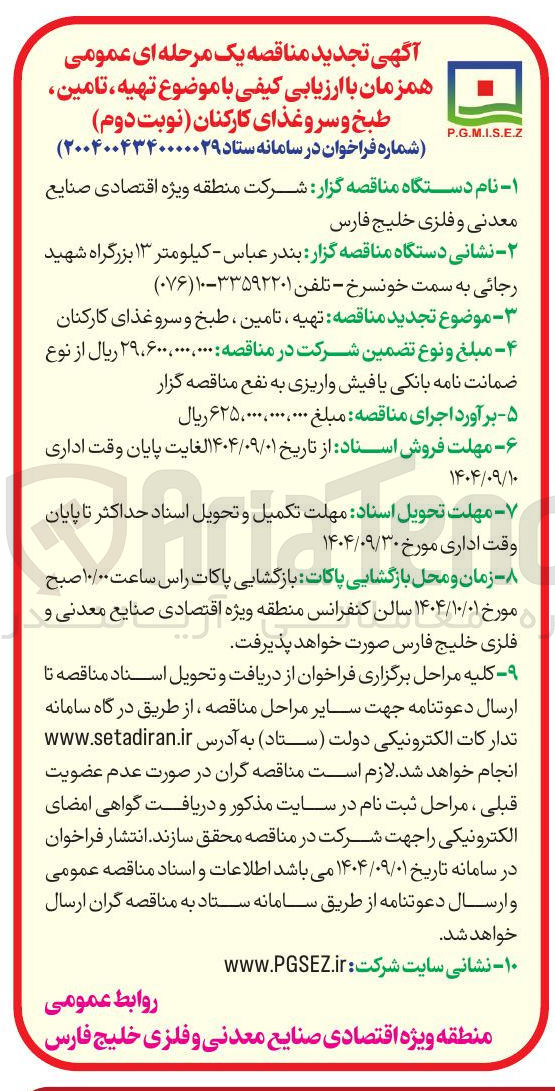 آگهی تجدید مناقصه یک مرحله ای عمومی
همزمان با ارزیابی کیفی با موضوع تهیه ، تامین ،
طبخ و سرو غذای کارکنان (نوبت دوم)
(شماره فراخوان در سامانه ستاد ۲۰۰۴۰۰۴۳۴۰۰۰۰۰۲۹)
P.G.M.I.S.E.Z
۱- نام دستگاه مناقصه گزار: شرکت منطقه ویژه اقتصادی صنایع
معدنی و فلزی خلیج فارس
۲- نشانی دستگاه مناقصه گزار: بندر عباس - کیلومتر ۱۳ بزرگراه شهید
رجائی به سمت خونسرخ - تلفن ۳۳۵۹۲۲۰۱-۱۰ (۰۷۶)
۳- موضوع تجدید مناقصه: تهیه ، تامین ، طبخ و سرو غذای کارکنان
۴- مبلغ و نوع تضمین شرکت در مناقصه: ۲۹،۶۰۰،۰۰۰،۰۰۰ ریال از نوع
ضمانت نامه بانکی یا فیش واریزی به نفع مناقصه گزار
۵- برآورد اجرای مناقصه: مبلغ ۶۲۵،۰۰۰،۰۰۰،۰۰۰ ریال
۶- مهلت فروش اسناد: از تاریخ ۱۴۰۴/۰۹/۰۱ لغایت پایان وقت اداری
۱۴۰۴/۰۹/۱۰
۷- مهلت تحویل اسناد: مهلت تکمیل و تحویل اسناد حداکثر تا پایان
وقت اداری مورخ ۱۴۰۴/۰۹/۳۰
۸- زمان و محل بازگشایی پاکات: بازگشایی پاکات راس ساعت ۱۰/۰۰ صبح
مورخ ۱۴۰۴/۱۰/۰۱ سالن کنفرانس منطقه ویژه اقتصادی صنایع معدنی و
فلزی خلیج فارس صورت خواهد پذیرفت.
۹- کلیه مراحل برگزاری فراخوان از دریافت و تحویل اسناد مناقصه تا
ارسال دعوتنامه جهت سایر مراحل مناقصه ، از طریق درگاه سامانه
تدارکات الکترونیکی دولت (ستاد) به آدرس www.setadiran.ir
انجام خواهد شد. لازم است مناقصه گران در صورت عدم عضویت
قبلی ، مراحل ثبت نام در سایت مذکور و دریافت گواهی امضای
الکترونیکی را جهت شرکت در مناقصه محقق سازند. انتشار فراخوان
در سامانه تاریخ ۱۴۰۴/۰۹/۰۱ می باشد اطلاعات و اسناد مناقصه عمومی
و ارسال دعوتنامه از طریق سامانه ستاد به مناقصه گران ارسال
خواهد شد.
۱۰- نشانی سایت شرکت: www.PGSEZ.ir
روابط عمومی
منطقه ویژه اقتصادی صنایع معدنی و فلزی خلیج فارس